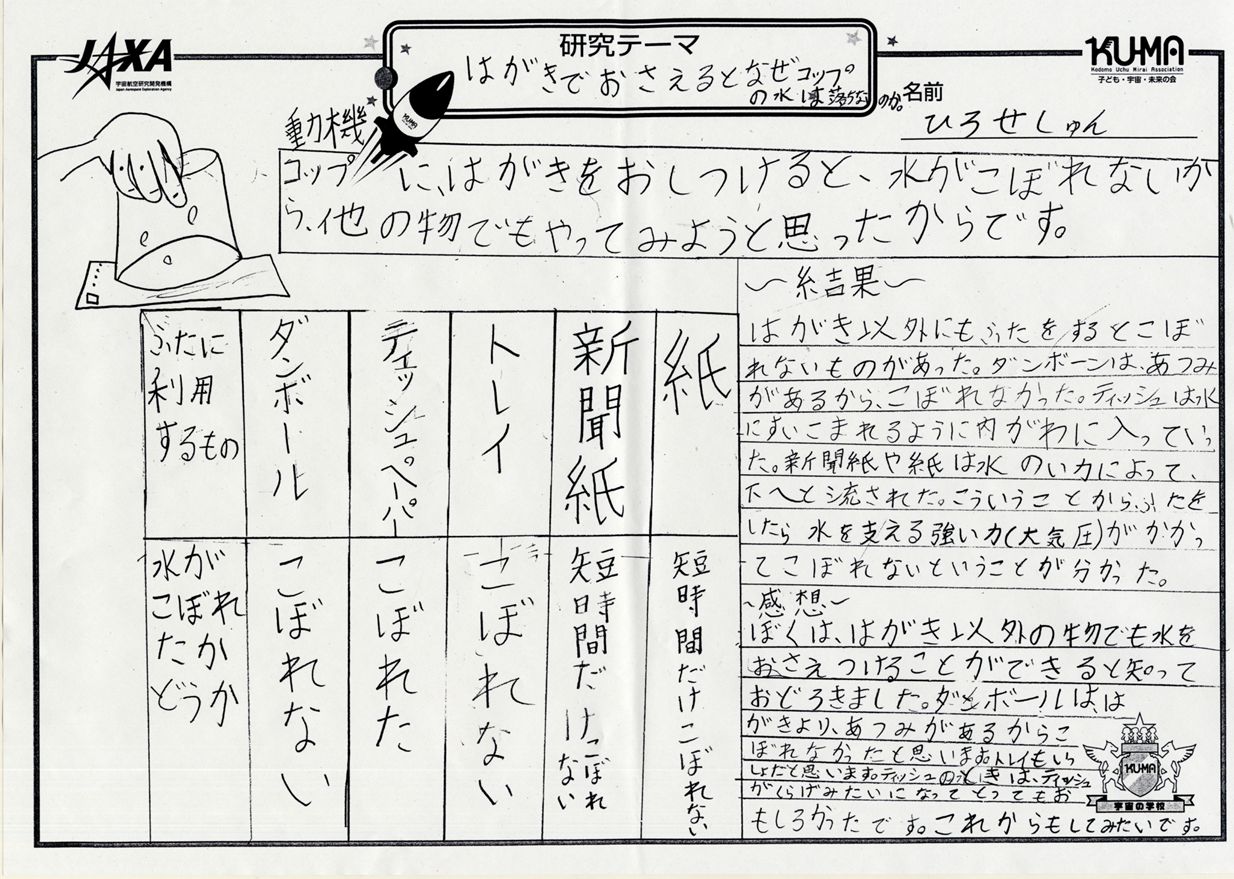 JAXA
宇宙航空研究開発機構
Japan Aerospace Exploration Agency
研究テーマ
はがきでおさえるとなぜコップ
の水は落ちないのか。
KU-MA
Kodomo Uchu Mirai Association
子ども・宇宙・未来の会
名前
ひろせしゅん
動機
コップに、はがきをおしつけると、水がこぼれないか
ら、他の物でもやってみようと思ったからです。
KU-MA
ふたに
利用
するもの
ダンボール
ティッシュペーパー
トレイ
新聞紙
紙
水が
こぼれ
たか
どうか
こぼれない
こぼれた
こぼれない
短時間だけこぼれ
ない
短時間だけこぼれない
〜結果〜
はがき以外にもふたをするとこぼ
れないものがあった。ダンボーンは、あつみ
があるから、こぼれなかった。ティッシュは水
にすいこまれるように内がわに入っていっ
た。新聞紙や紙は水のい力によって、
下へと流された。こういうことから、ふたを
したら水を支える強い力(大気圧)がかかっ
てこぼれないということが分かった。
〜感想〜
ぼくは、はがき以外の物でも水を
おさえつけることができると知って
おどろきました。ダンボールは、は
がきより、あつみがあるからこ
ぼれなかったと思います。トレイもいっ
しょだと思います。ティッシュのときは、ティッシュ
がくらげみたいになってとってもお
もしろかったです。これからもしてみたいです。
KU-MA
宇宙の学校